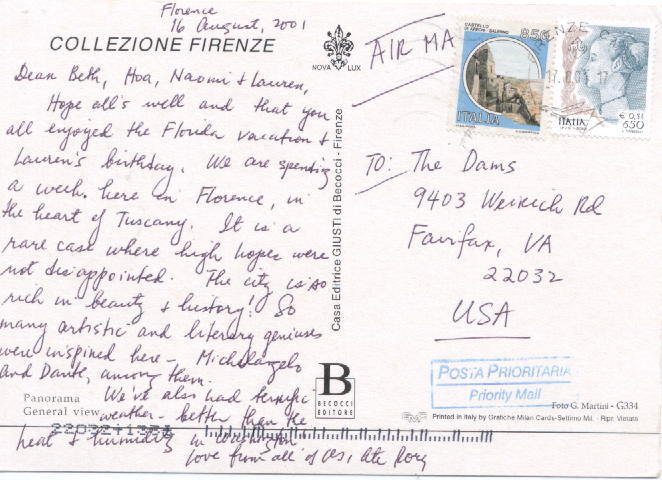 Florence
16 August, 2001
COLLEZIONE FIRENZE
NOVA LUX
Dear Beth, Hoa, Naomi & Lauren,
Hope all's well and that you
all enjoyed the Florida vacation &
Lauren's birthday. We are spending
a week here in Florence, in
the heart of Tuscany. It is a
rare case where high hopes were
not disappointed. The city is so
rich in beauty & history! So
many artistic and literary geniuses
were inspired here – Michelangelo
and Dante, among them.
We've also had terrific
weather – better than the
heat & humidity in Washington
love from all of us,
Panorama
General view
22032+1334
Casa Editrice GIUSTI di Becocci - Firenze
B
BECOCCI
EDITORE
AIR MA
CASTELLO
DI ARECHI - SALERNO
850
ITALIA
FIRENZE
17
ITALIA
€ 0,34
650
TO: The Dams
9403 Weirich Rd
Fairfax, VA
22032
USA
POSTA PRIORITARIA
Priority Mail
Foto G. Martini - G334
Printed in Italy by Grafiche Milan Cards-Settimo Mil. - Ripr. Vietata